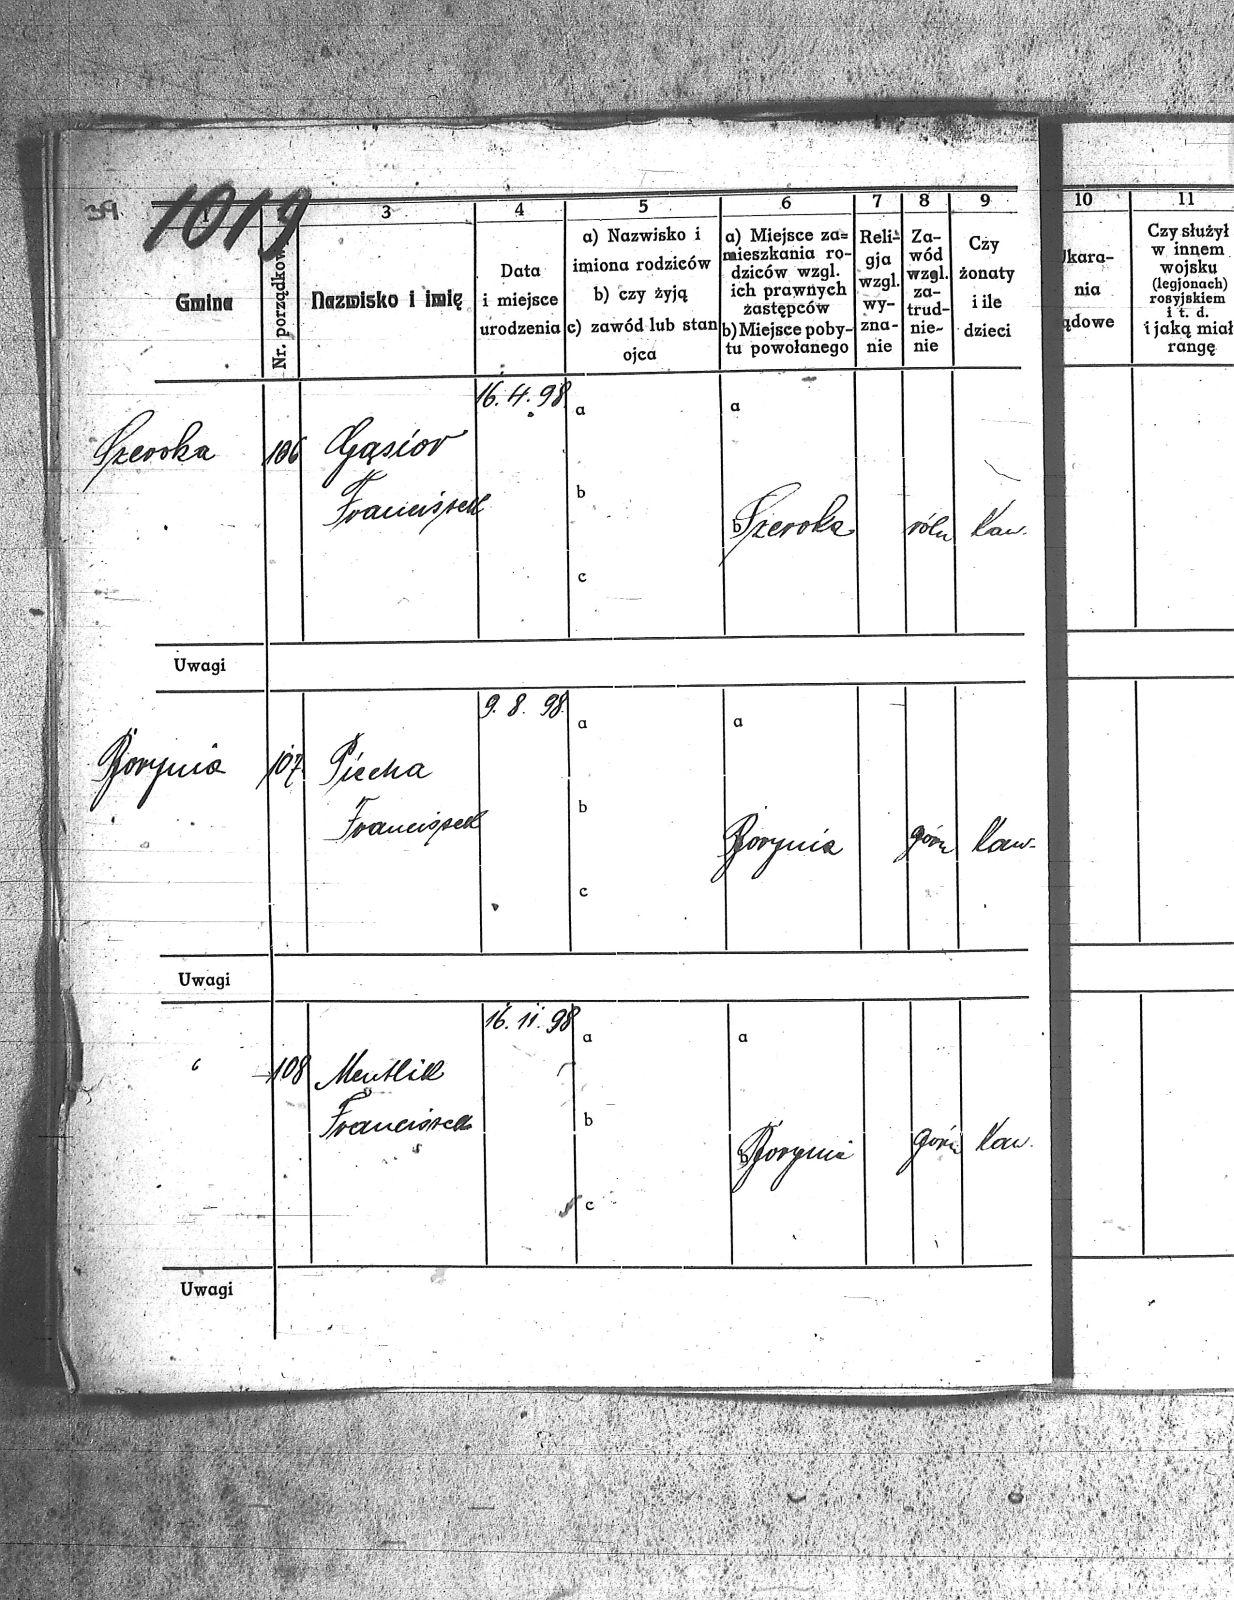 1019
1 3 4 5 6 7 8 9 10 11
Gmina
Nr. porządkow
Nazwisko i imię
Data
i miejsce
urodzenia
a) Nazwisko i
imiona rodziców
b) czy żyją
c) zawód lub stan
ojca
a) Miejsce za=
mieszkania ro-
dziców wzgl.
ich prawnych
zastępców
b) Miejsce poby-
tu powołanego
Reli-
gja
wzgl.
wy-
zna-
nie
Za-
wód
wzgl.
za-
trud-
nie-
nie
Czy
żonaty
i ile
dzieci
Ukara-
nia
ądowe
Czy służył
w innem
wojsku
(legjonach)
rosyjskiem
i t. d.
i jaką miał
rangę
16. 4. 98
a a
Szeroka 106 Gąsior
Franciszek
b
b Szeroka roln Kaw.
c
Uwagi
9. 8. 98.
a a
Borynia 107 Piecha
Franciszek
b
Borynia górn Kaw.
c
Uwagi
16. 11. 98
a a
108 Mentlik
Franciszek
b
b Borynia górn Kaw.
c
Uwagi